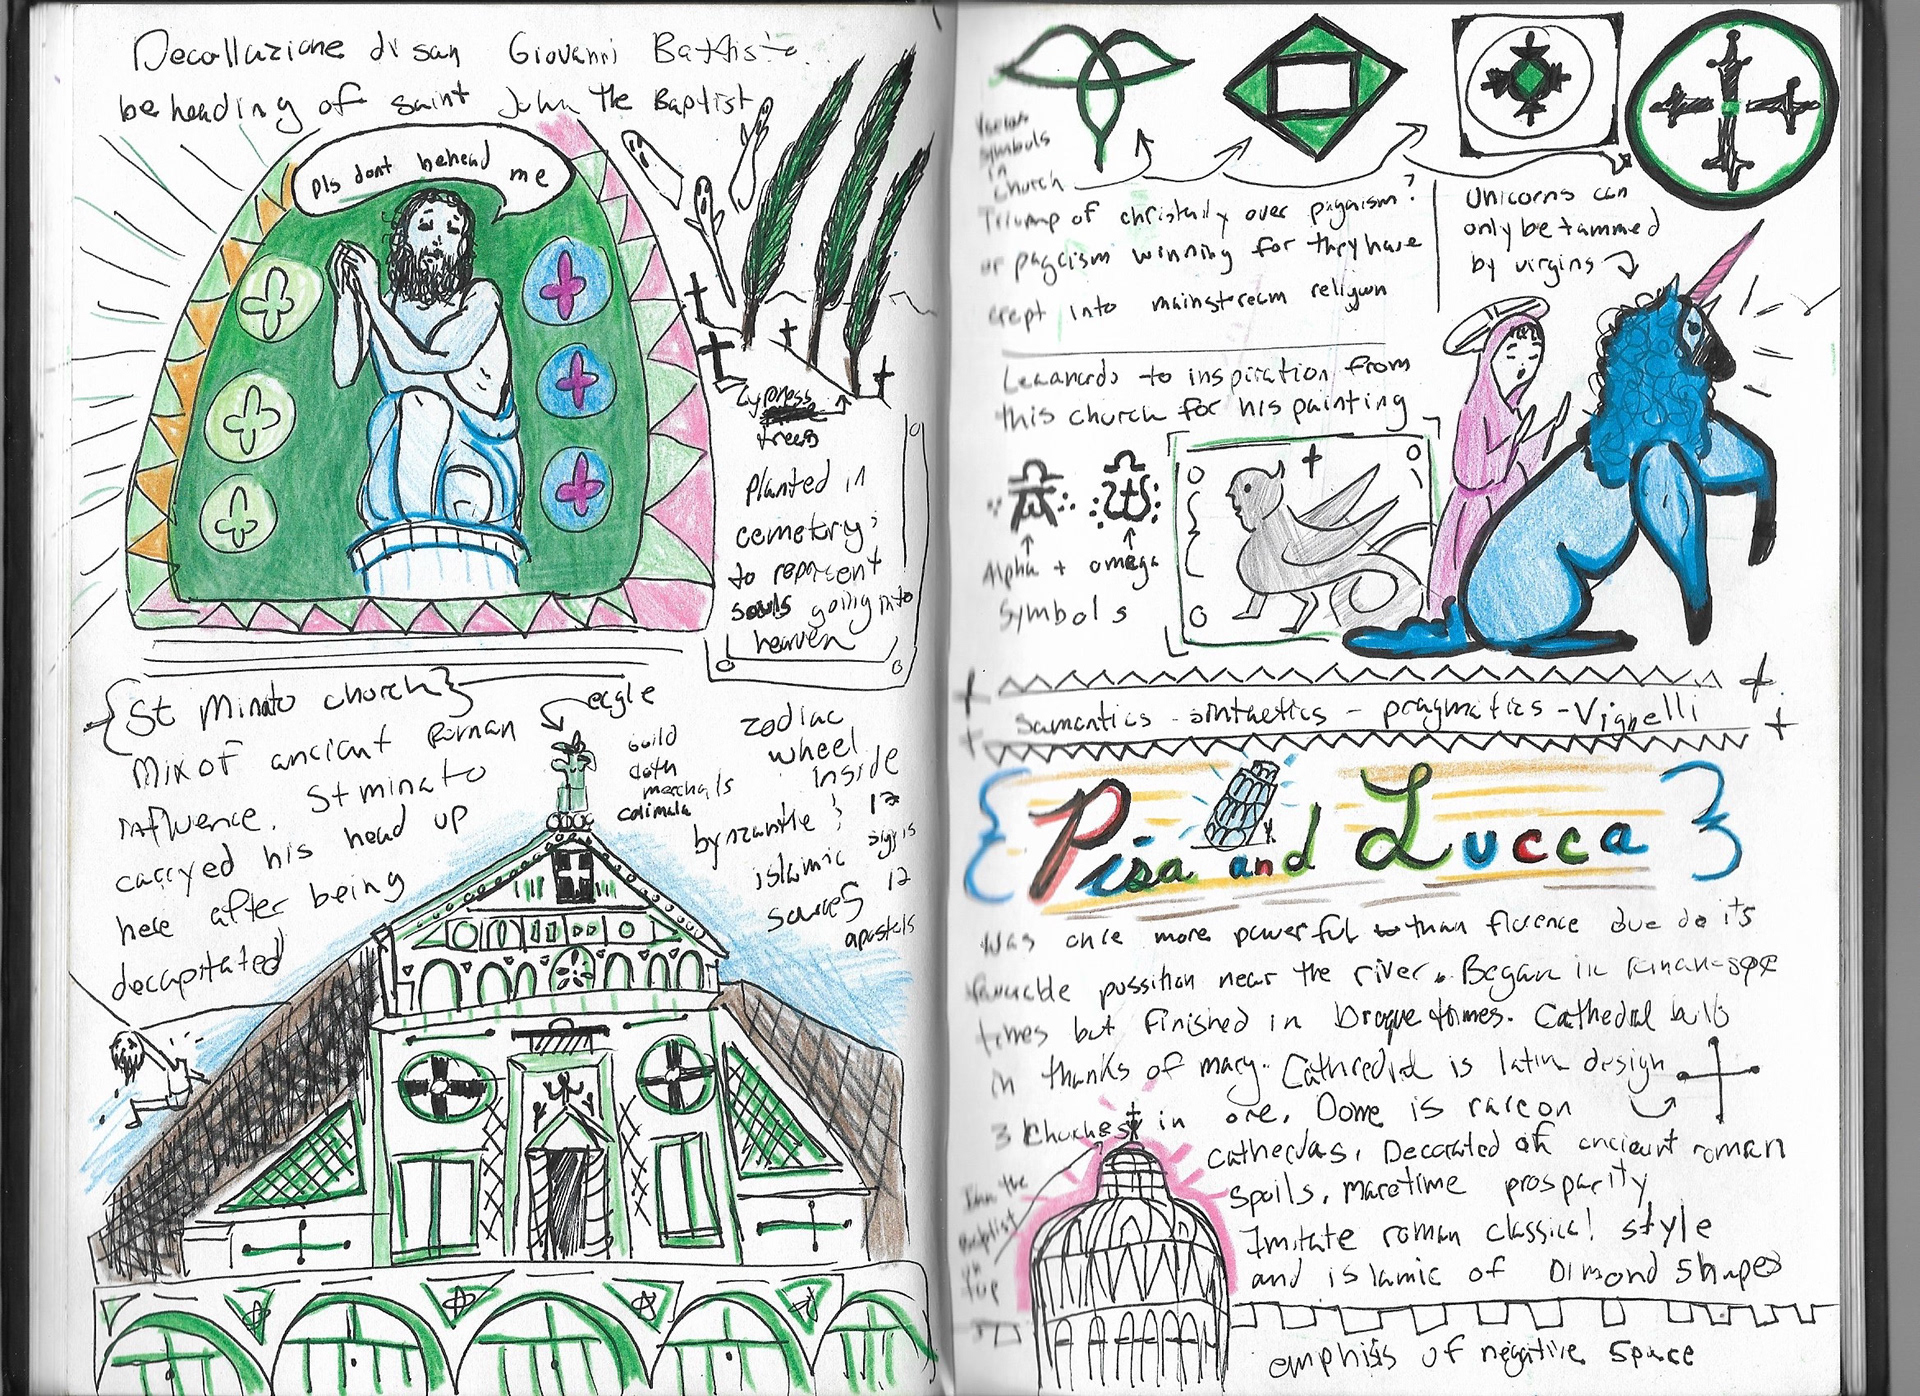 Decollazione di san Giovanni Battista
beheading of saint John the Baptist
pls dont behead me
Cypress
trees
planted in
cemetery;
to represent
souls going into
heaven
{St Minato church}
Mix of ancient Roman
influence. St minato
carryed his head up
here after being
decapitated
eagle
Guild
cloth
merchants
calimala
zodiac
wheel
inside
byzantle ; 12
islamic signs
sources 12
apostels
Various
symbols
in
church
Triump of christanity over paganism?
or pagaism winning for they have
crept into mainstream religion
Unicorns can
only be tammed
by virgins
Leaonardo to inspiration from
this church for his painting
Alpha + omega
Symbols
Samantics - sintactics - pragmatics - Vignelli
{Pisa and Lucca}
Was once more powerful than florence due do it's
favorable possition near the river. Began in
times but finished in Broque times. Cathedral built
in thanks of mary. Cathredral is latin design
3 Churches in one. Dome is rare on
cathedras. Decorated of ancient roman
spoils. maretime prosparity
John the
Baptist
on
top
Imitate roman classical style
and islamic of Dimond shapes
emphisis of negative space